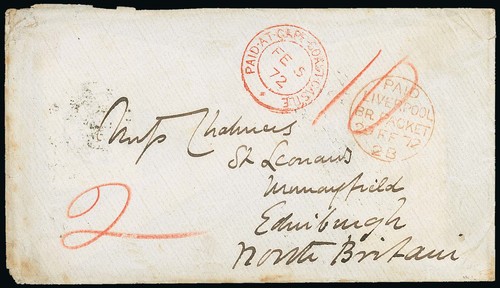 PAID-AT-CAPE-COAST CASTLE
FE 5
72
1/-
PAID
LIVERPOOL
BR. PACKET
FE 72
2B
Miss Chalmers
St Leonards
Murrayfield
Edinburgh
North Britain
2